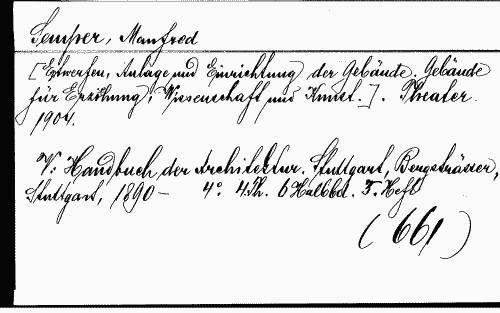 Semper, Manfred
[Entwerfen, Anlage und Einrichtung der Gebäude. Gebäude
für Erziehung, Wissenschaft und Kunst.]. Theater.
1904.
V: Handbuch der Architektur. Stuttgart, Bergsträsser,
Stuttgart, 1890- 4°. 4.Th. 6 Halbbd. 5. Heft
(661)